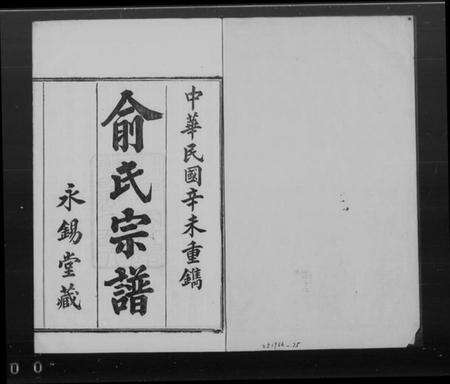 中華民國辛未重鐫
俞氏宗譜
永錫堂藏